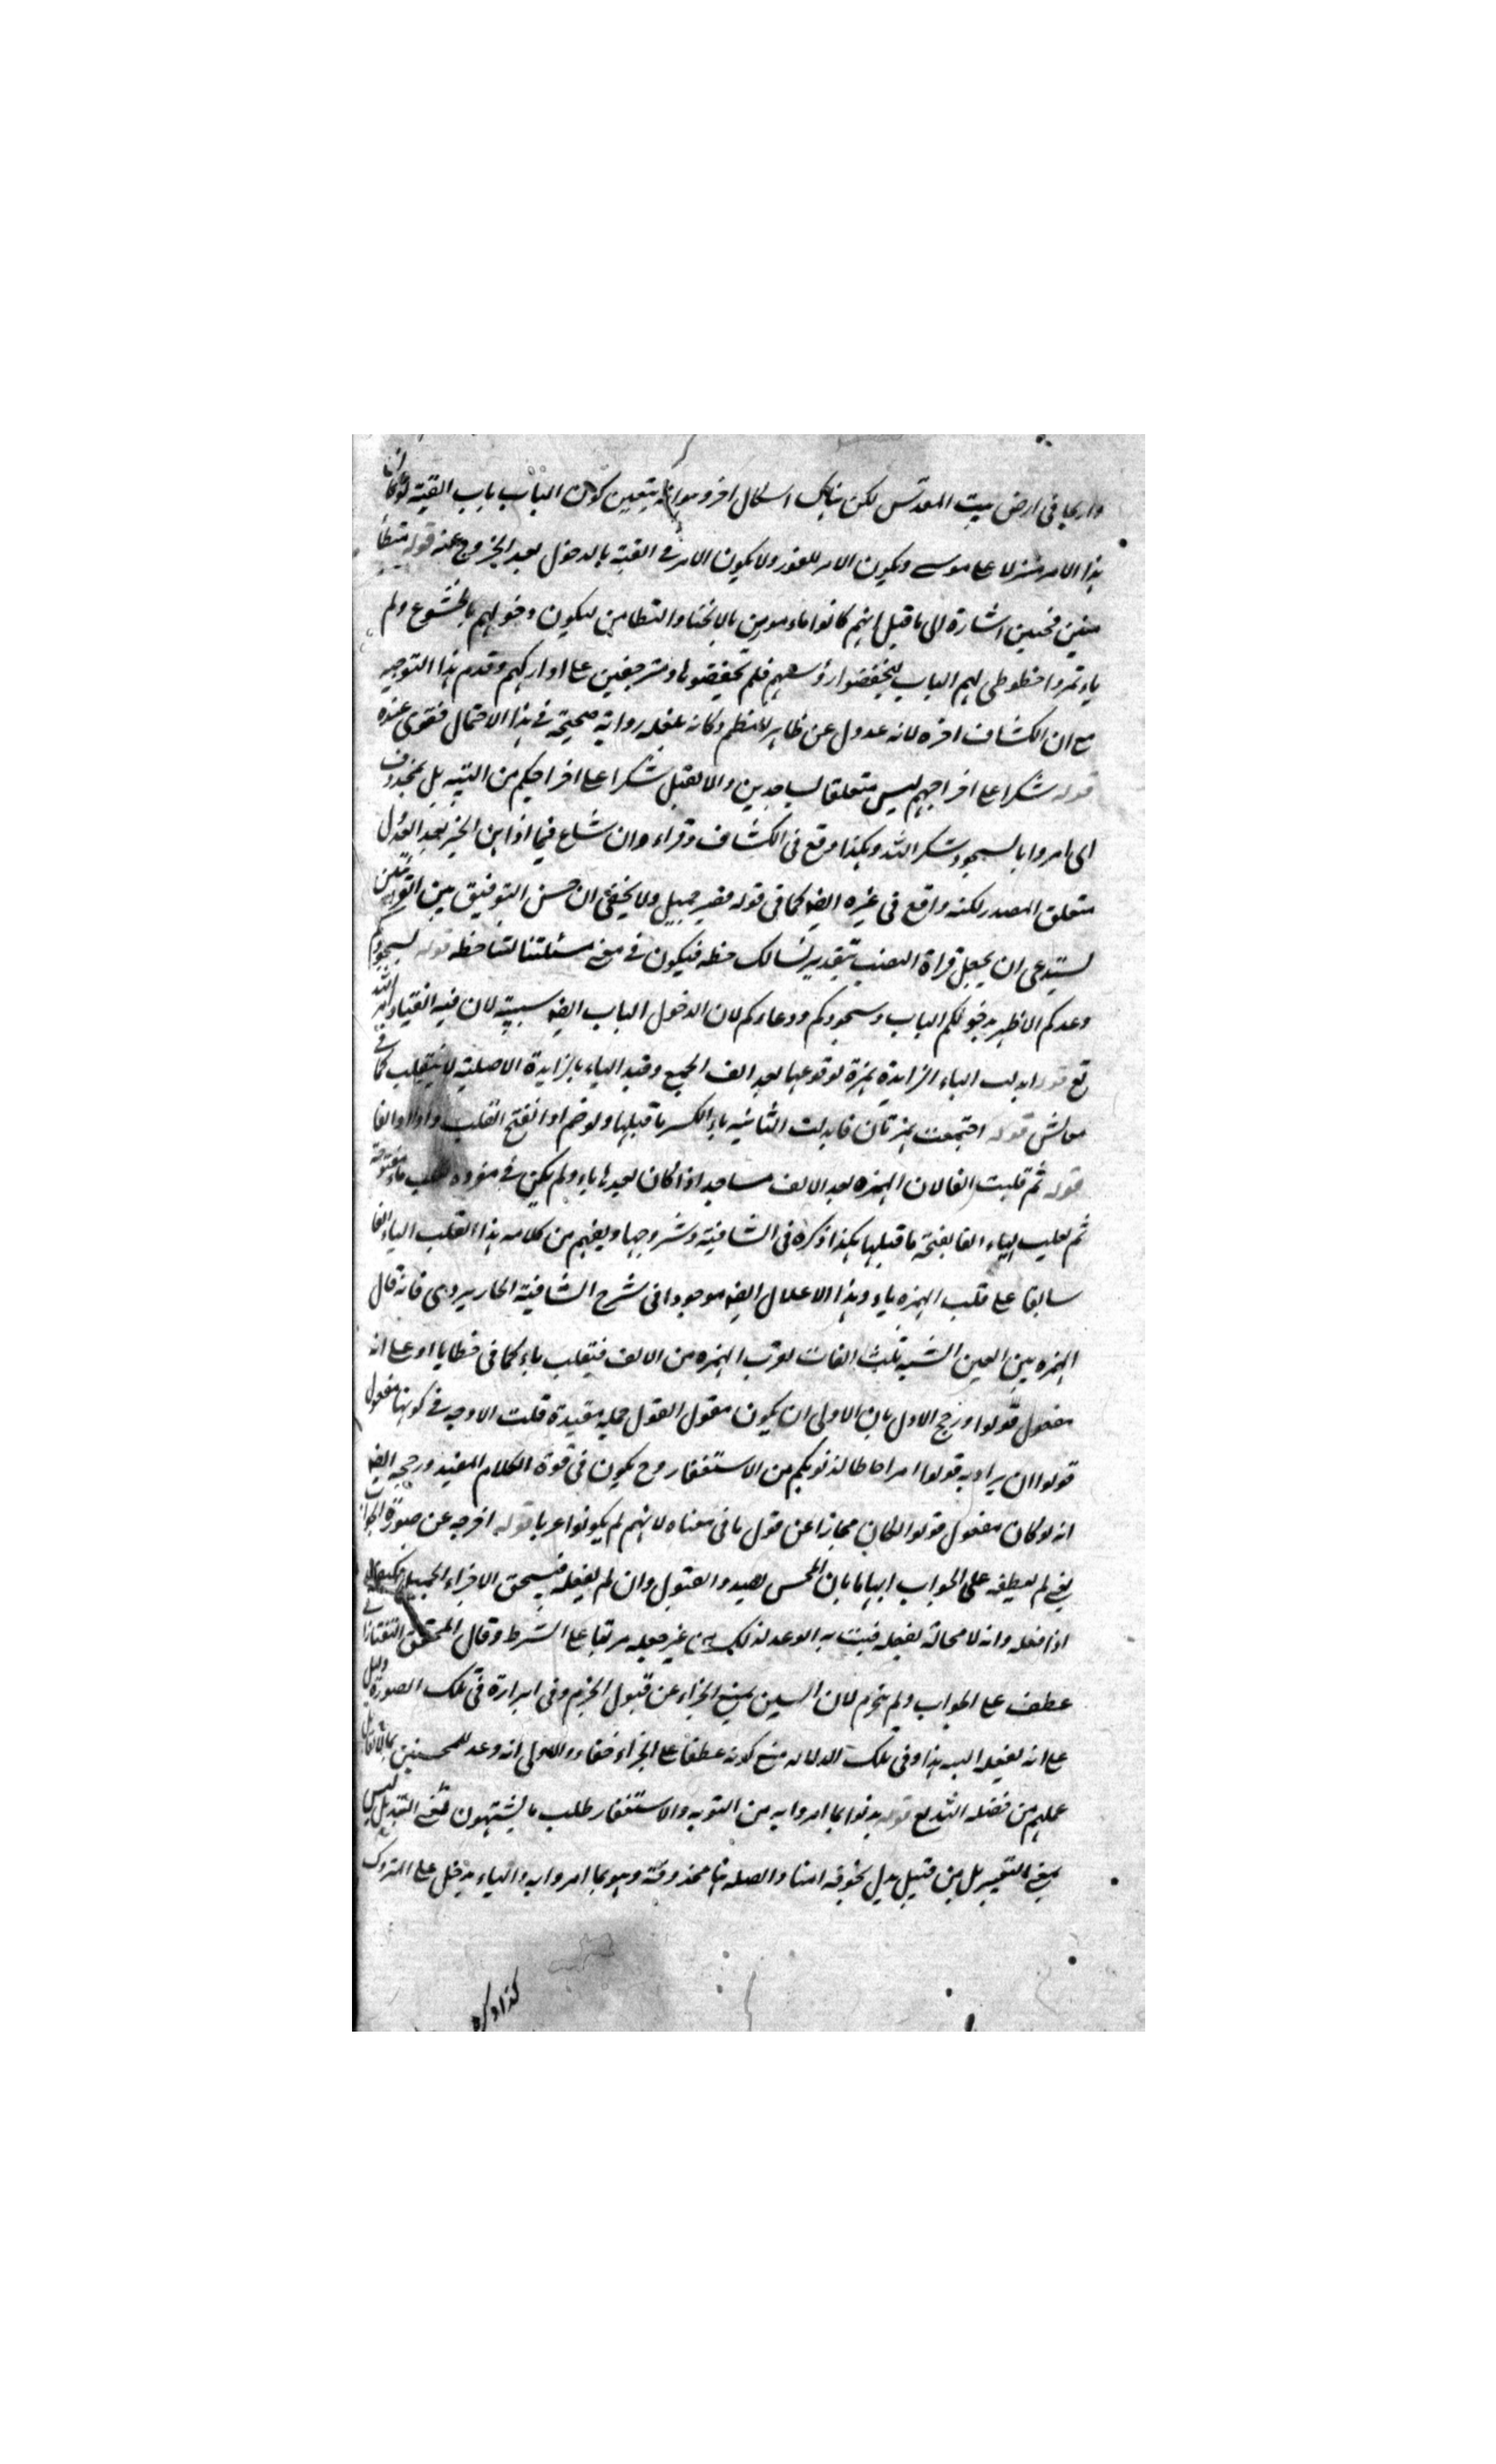 واريحا فى ارض بيت المقدس لكن هناك اشكال اخر وهو انه يتعين كون الباب باب القبة لو كان
هذا الامر منزلا على موسى ويكون الامر للفور ولا يكون الامر فى القبة بالدخول بعد الخروج عنه قوله متطا
منين مخبتين اشارة الى ما قيل انهم كانوا مامورين بالانحناء والتطامن ليكون دخولهم بالخشوع ولم
ياتمروا فطوطى لهم الباب ليخفضوا رؤسهم فلم يخفضوها ودخلوا متزحفين على اوراكهم وقدم هذا التوجيه
مع ان الكشاف اخره لانه عدول عن ظاهر النظم وكانه بلغه رواية صحيحة فى هذا الاحتمال فقوى عنده
قوله شكرا على اخراجهم ليس متعلقا بساجدين والا لقيل شكرا على اخراجكم من التيه بل بمحذوف
اى امروا بالسجود شكرا لله وهكذا وقع فى الكشاف وان شاع فيما اذا
متعلق المصدر لكنه واقع فى غيره ايضا كما فى قوله فصبر جميل ولا يخفى ان حسن التوفيق بين القرائتين
يستدعى ان يجعل قراة النصب بتقدير نسالك حطة فيكون فى معنى مسئلتنا حطة قوله بسجودكم
ودعائكم الاظهر بدخولكم الباب وسجودكم ودعاءكم لان الدخول الباب ايضا سببية لان فيه انقياد امر الله
تع قوله ابدلت الياء الزايدة همزة لوقوعها بعد الف الجمع وقيد الياء بالزايدة الاصلية لا ينقلب كما فى
معايش قوله اجتمعت همزتان فابدلت الثانية ياء لكسر ما قبلها ولو ضم او انفتح انقلب واوا او الفا
قوله ثم قلبت الفا لان الهمزة بعد الالف مساجد اذا كان بعدها ياء ولم يكن فى مفرده تقلب ياء مفتوحة
ثم تقلب الياء الفا بفتحة ما قبلها هكذا ذكره فى الشافية وشروحها ويفهم من كلامه هذا القلب الياء الفا
سابقا على قلب الهمزة ياء وهذا الاعلال ايضا موجود فى شرح الشافية الجاربردى فانه قال
الهمزة بين العين الشبه بثلث الفات لقرب الهمزة من الالف فيقلب ياء كما فى خطايا او على انه
مفعول قولوا ورجح الاول بان الاولى ان يكون مقول القول جملة مقيدة قلت الاوجه فى كونها مفعول
قولوا ان يراد به قولوا امرا حاطا لذنوبكم من الاستغفار وح يكون فى قوة الكلام المفيد ورجحه ايضا
انه لو كان مفعول قولوا لكان مجازا عن قول ما فى معناه لانهم لم يكونوا عربا قوله اخرجه عن صورة الجواب
يعنى لم يعطفه على الجواب ايهاما بان المحسن بصدد القبول وان لم يفعله فيستحق الاجزاء الجميل فكيف
اذا فعله وانه لا محالة يفعله فيثبت به الوعد لذلك من غير جعله مرتبا على الشرط وقال المحقق التفتازانى
عطف على الجواب ولم ينجزم لان السين يمنع الجزاء عن قبول الجزم وفى ابرازه فى تلك الصورة دليل
على انه يفعله البتة هذا وفى تلك الدلالة مع كونه عطفا على الجزاء خفاء والاولى انه وعد للمحسنين
عملهم من فضله الله تع قوله بدلوا بما امروا به من التوبة والاستغفار طلب ما يشتهون معنى التبديل ليس
بمعنى التغيير بل من قبيل بدل بخوفه امنا والصلة هنا محذوفة وهو بما امروا به والباء يدخل على المتروك
كذا ذكره